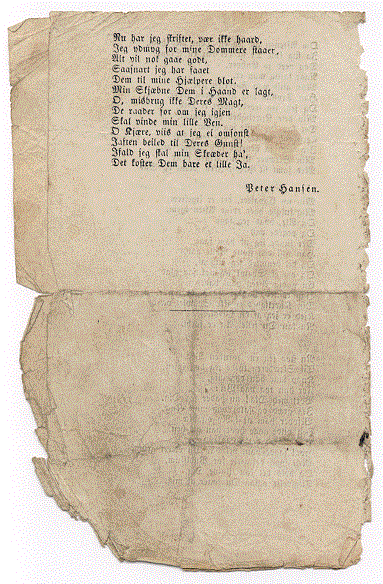 Nu har jeg skriftet, vær ikke haard,
Jeg ydmyg for mine Dommere staaer,
Alt vil nok gaae godt,
Saasnart jeg har faaet
Dem til mine Hjælpere blot.
Min Skjæbne Dem i Haand er lagt,
O, misbrug ikke Deres Magt,
De raader for om jeg igjen
Skal vinde min lille Ven.
O Kjære, viis at jeg ei omsonst
Iaften beiled til Deres Gunst!
Ifald jeg skal min Skræder ha',
Det koster Dem bare et lille Ja.
Peter Hansen.